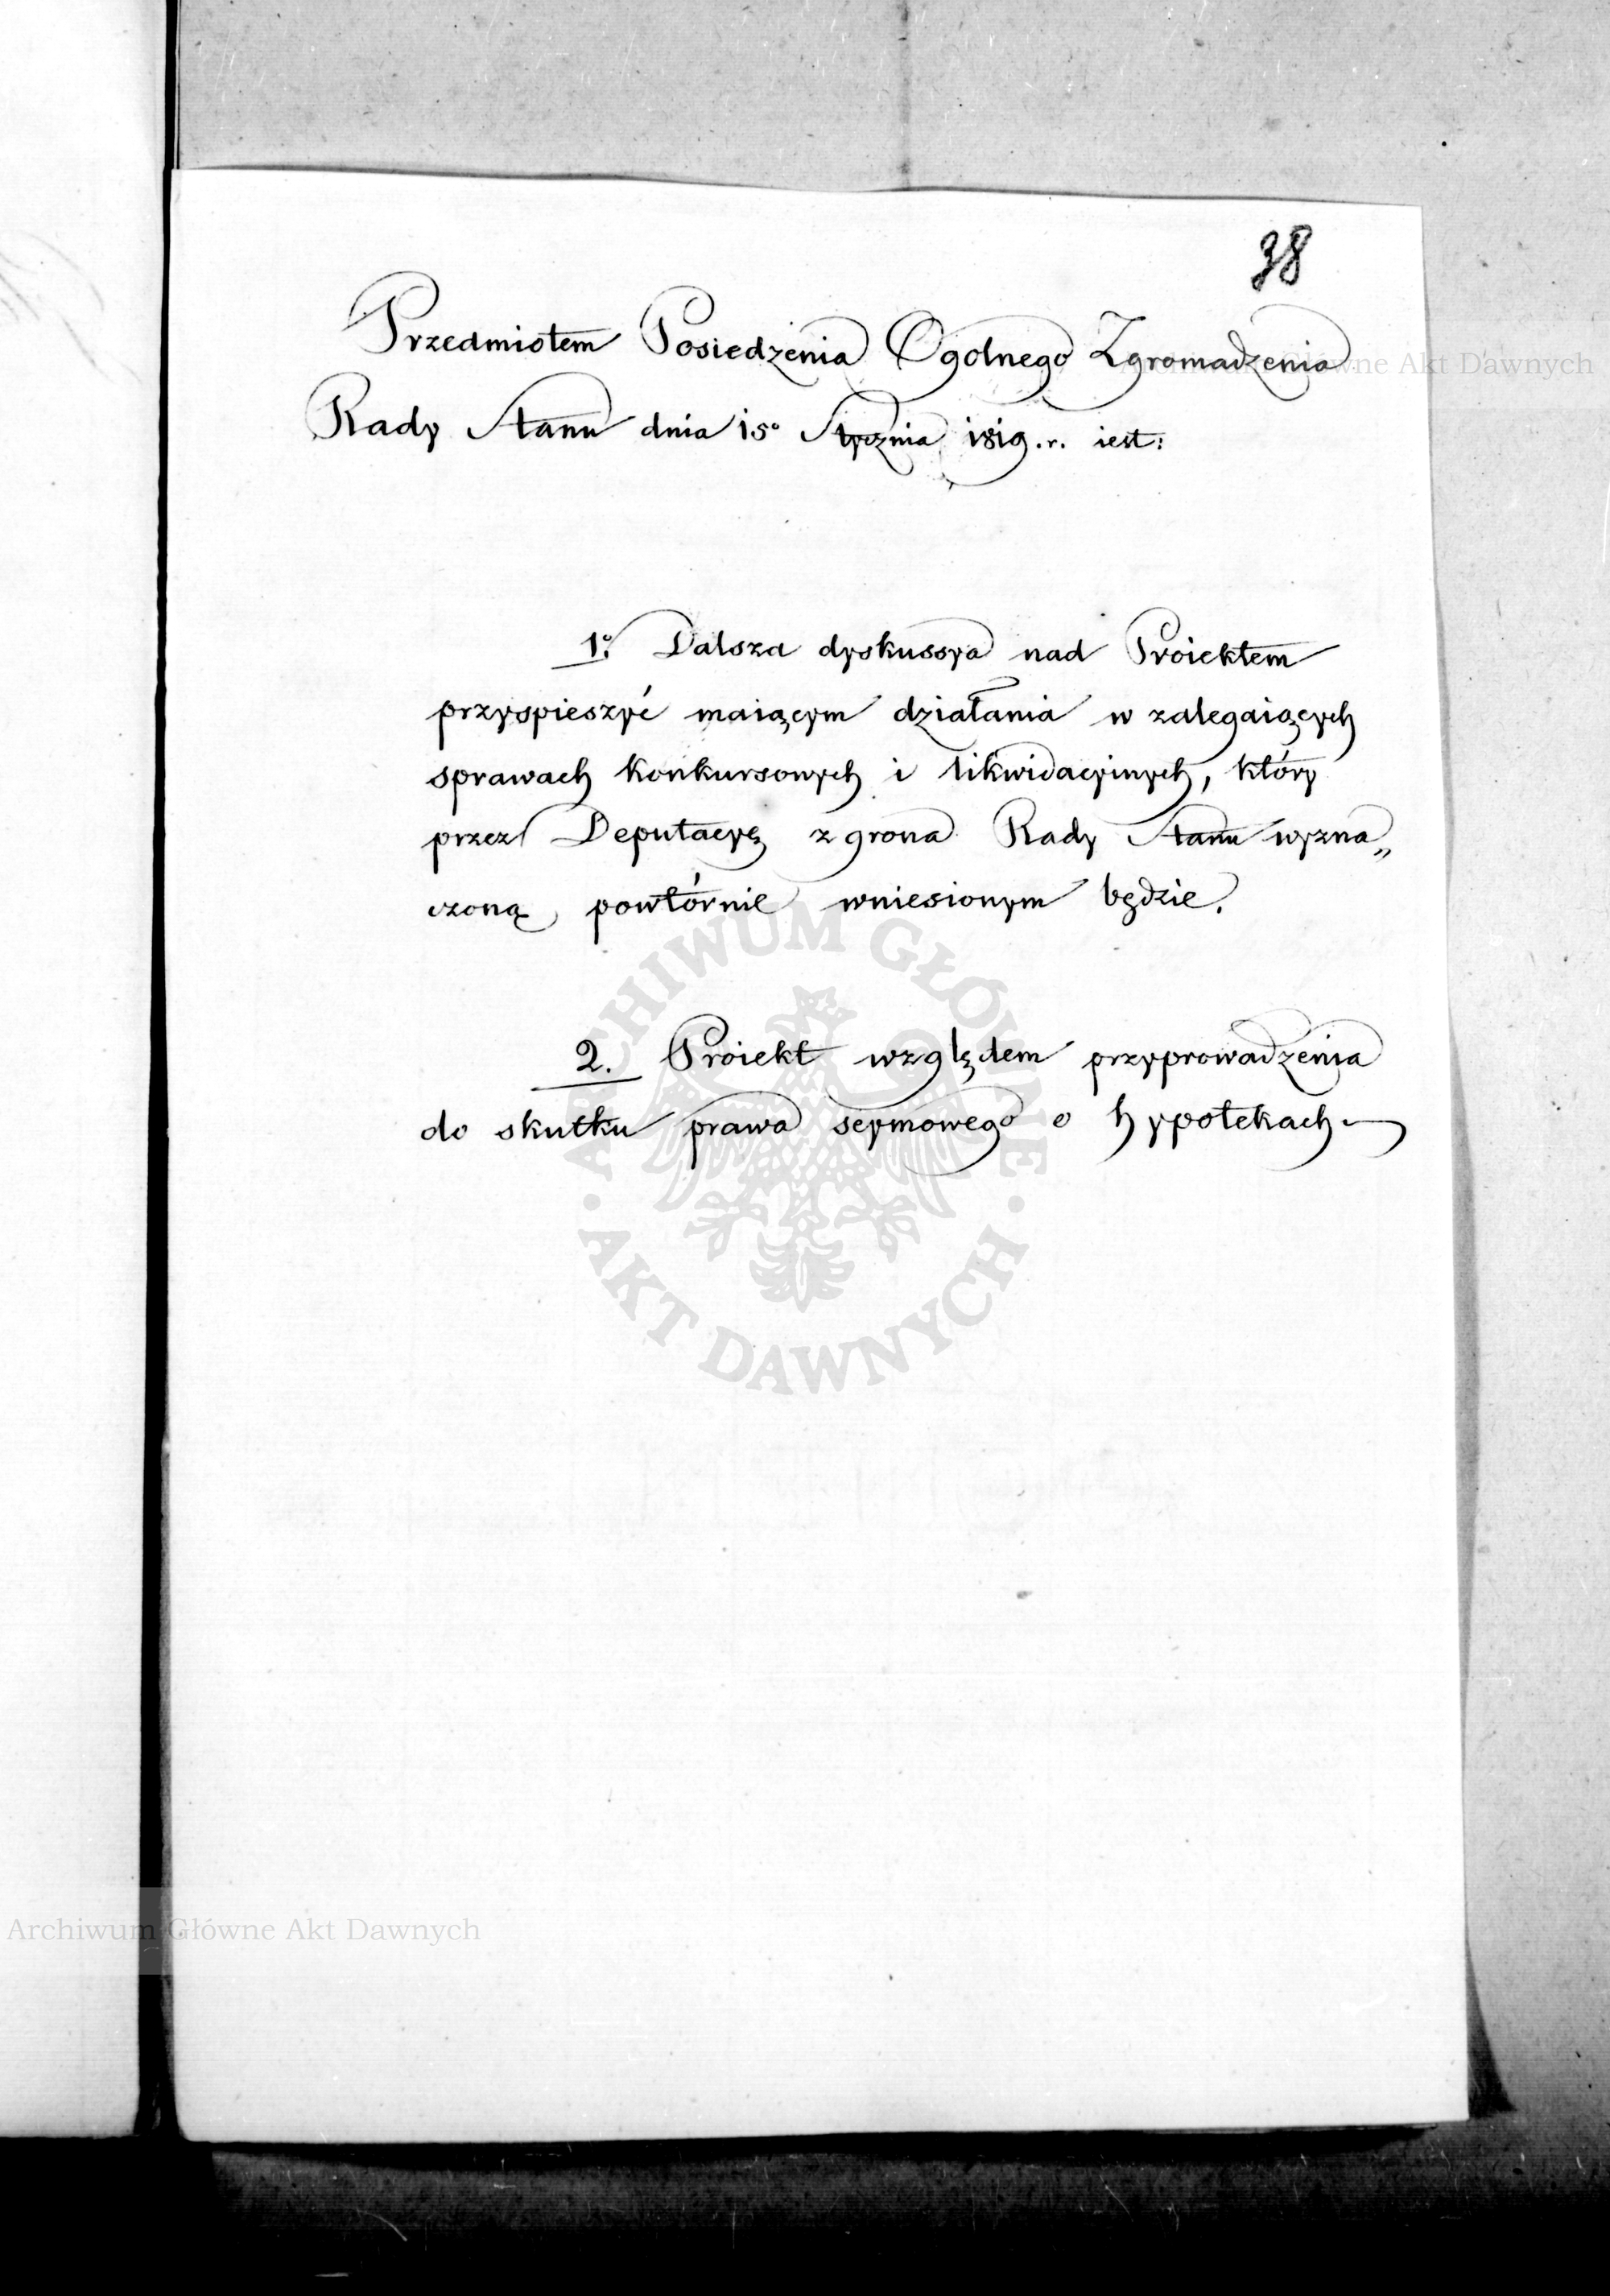 38
Przedmiotem Posiedzenia Ogolnego Zgromadzenia
Rady Stanu dnia 15º Stycznia 1819.r. iest:
1º. Dalsza dyskussya nad Proiektem
przyspieszyć maiącym działania w zalegaiących
sprawach konkursowych i likwidacyinych, który
przez Deputacyę z grona Rady Stanu wyzna„
czoną powtórnie wniesionym będzie.
2. Proiekt względem przyprowadzenia
do skutku prawa seymowego o hypotekach.
ARCHIWUM GŁÓWNE
AKT DAWNYCH
Archiwum Główne Akt Dawnych
Archiwum Główne Akt Dawnych